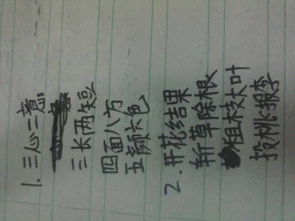 1.三心二意
三长两短
四面八方
五颜六色
2.开花结果
斩草除根
粗枝大叶
投桃报李